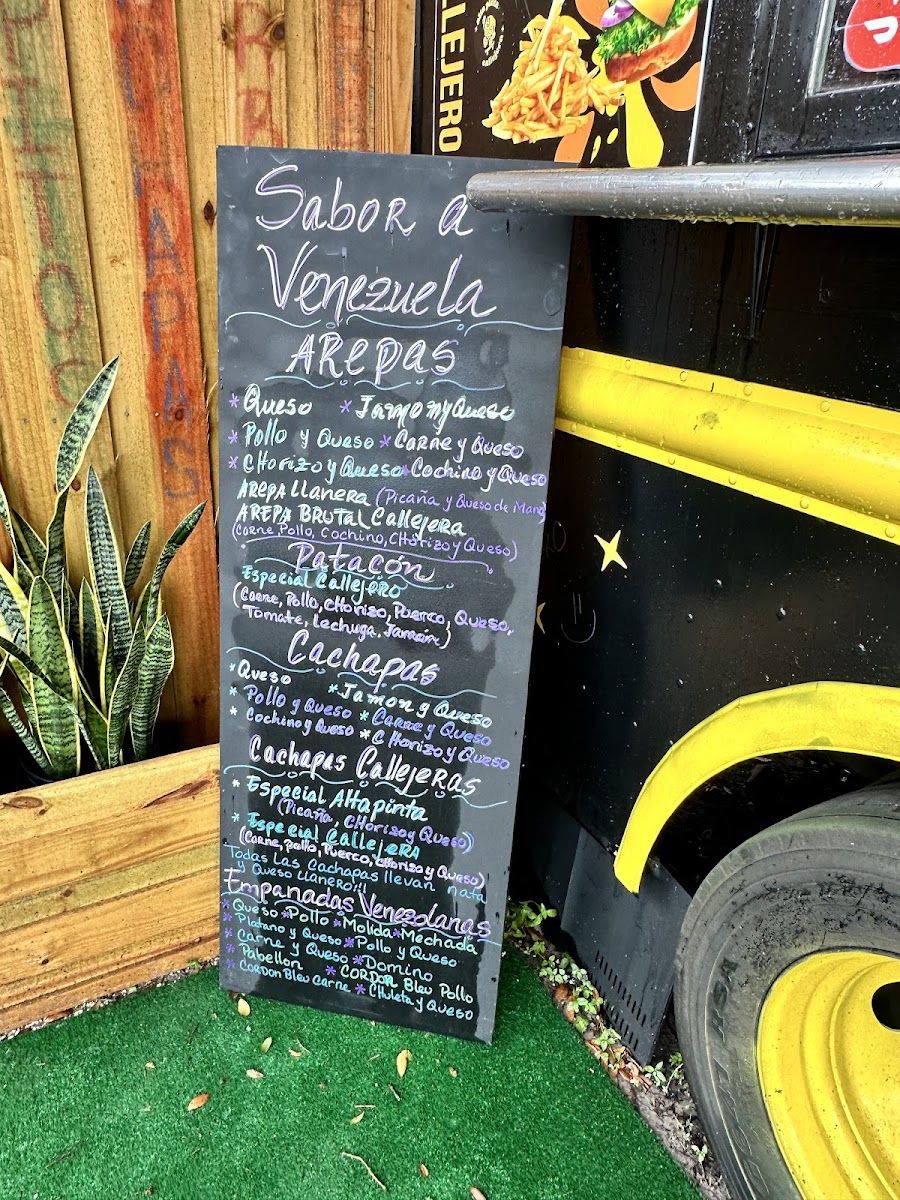 LLEJERO
Sabor a
Venezuela
AREPAS
* Queso * Jamon y Queso
* Pollo y Queso * Carne y Queso
* CHorizo y Queso * Cochino y Queso
AREPA llanera (Picaña y Queso de Mano)
AREPA BRUTAL Callejera
(Carne, Pollo, Cochino, CHorizo y Queso)
Patacón
Especial Callejero
(Carne, Pollo, cHorizo, Puerco, Queso,
Tomate, Lechuga, Jamón)
Cachapas
* Queso * Jamon y Queso
* Pollo y Queso * Carne y Queso
* Cochino y Queso * CHorizo y Queso
Cachapas Callejeras
* Especial Altapinta
(Picaña, CHorizo y Queso)
* Especial CallejeRA
(Carne, pollo, Puerco, cHorizo y Queso)
Todas Las Cachapas llevan nata
y Queso LLanero!!!
Empanadas Venezolanas
* Queso * Pollo * Molida * Mechada
* Platano y Queso * Pollo y Queso
* Carne y Queso * Domino
* Pabellon * CORDON Bleu Pollo
* CORDON Bleu carne * CHuleta y Queso